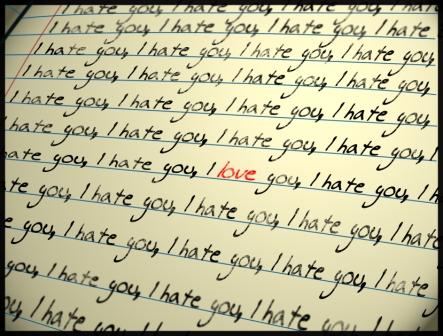 I hate you, I hate you, I hate you, I hate
I hate you, I hate you, I hate you, I hate
I hate you, I hate you, I hate you, I hate you,
I hate you, I hate you, I hate you, I hate you,
I hate you, I hate you, I hate you, I hate you,
hate you, I hate you, I hate you, I hate you, I
hate you, I hate you, I love you, I hate you, I h
ate you, I hate you, I hate you, I hate you, I hate
e you, I hate you, I hate you, I hate you, I hate
you, I hate you, I hate you, I hate you, I hate
ou, I hate you, I hate you, I hate you,